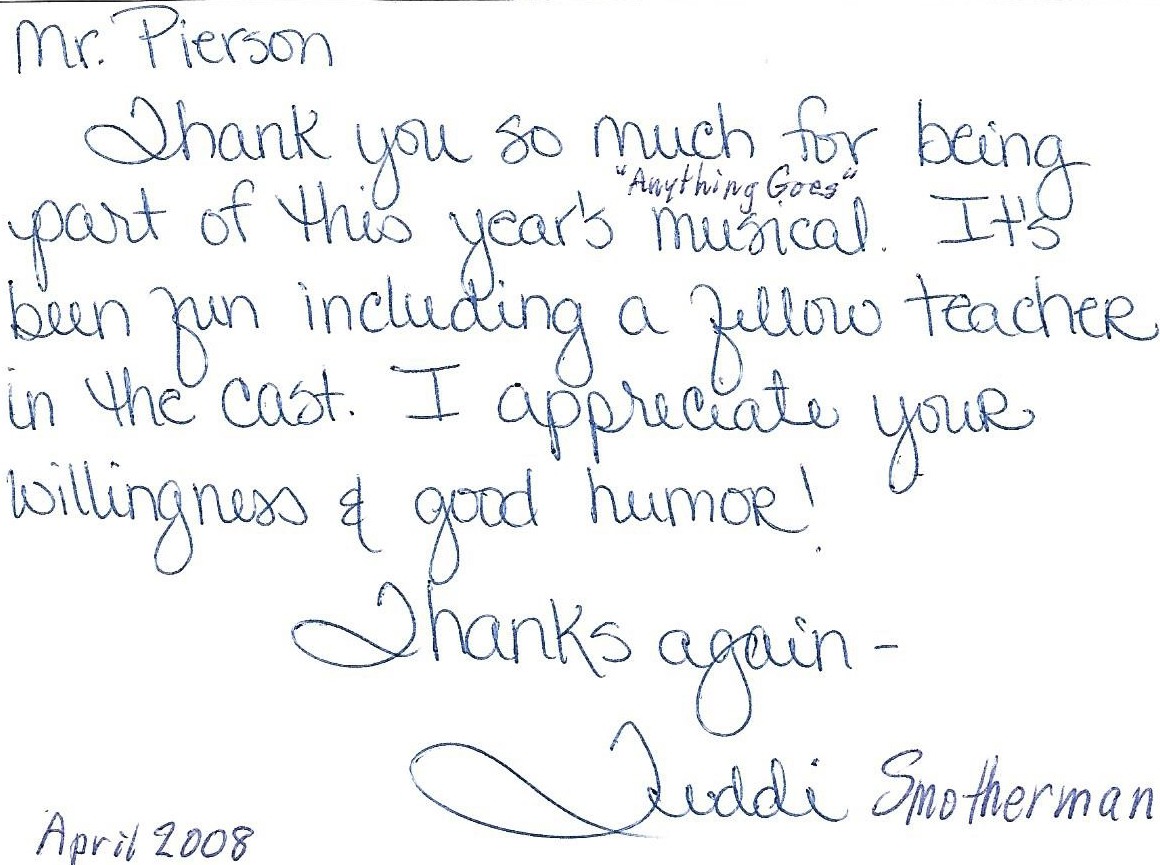 Mr. Pierson
Thank you so much for being
"Anything Goes"
part of this year's musical. It's
been fun including a fellow teacher
in the cast. I appreciate your
willingness & good humor!
Thanks again -
Juddi Smotherman
April 2008